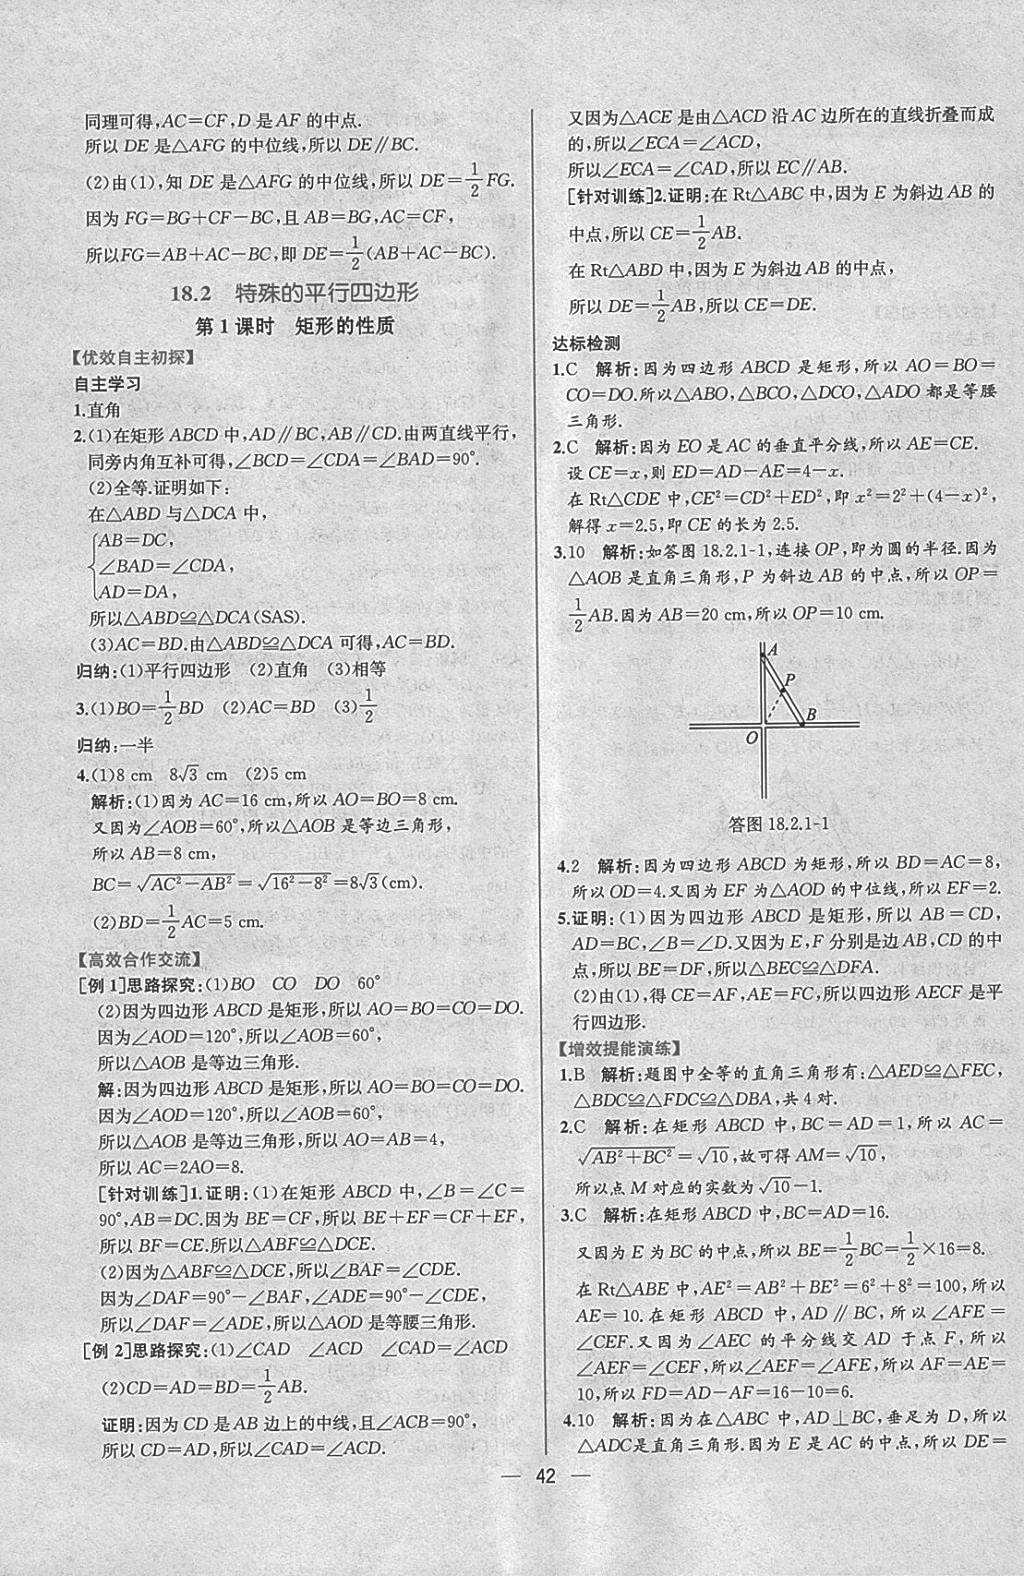 同理可得,AC=CF,D是AF的中点.
所以DE是△AFG的中位线,所以DE∥BC.
(2)由(1),知DE是△AFG的中位线,所以DE=1/2FG.
因为FG=BG+CF-BC,且AB=BG,AC=CF,
所以FG=AB+AC-BC,即DE=1/2(AB+AC-BC).
18.2 特殊的平行四边形
第1课时 矩形的性质
【优效自主初探】
自主学习
1.直角
2.(1)在矩形ABCD中,AD∥BC,AB∥CD.由两直线平行,
同旁内角互补可得,∠BCD=∠CDA=∠BAD=90°.
(2)全等.证明如下:
在△ABD与△DCA中,
AB=DC,
∠BAD=∠CDA,
AD=DA,
所以△ABD≌△DCA(SAS).
(3)AC=BD.由△ABD≌△DCA可得,AC=BD.
归纳:(1)平行四边形 (2)直角 (3)相等
3.(1)BO=1/2BD (2)AC=BD (3)1/2
归纳:一半
4.(1)8 cm 8√3 cm (2)5 cm
解析:(1)因为AC=16 cm,所以AO=BO=8 cm.
又因为∠AOB=60°,所以△AOB是等边三角形,
所以AB=8 cm,
BC=√(AC²-AB²)=√(16²-8²)=8√3(cm).
(2)BD=1/2AC=5 cm.
【高效合作交流】
[例1]思路探究:(1)BO CO DO 60°
(2)因为四边形ABCD是矩形,所以AO=BO=CO=DO.
因为∠AOD=120°,所以∠AOB=60°,
所以△AOB是等边三角形.
解:因为四边形ABCD是矩形,所以AO=BO=CO=DO.
因为∠AOD=120°,所以∠AOB=60°,
所以△AOB是等边三角形,所以AO=AB=4,
所以AC=2AO=8.
[针对训练]1.证明:(1)在矩形ABCD中,∠B=∠C=
90°,AB=DC.因为BE=CF,所以BE+EF=CF+EF,
所以BF=CE.所以△ABF≌△DCE.
(2)因为△ABF≌△DCE,所以∠BAF=∠CDE.
因为∠DAF=90°-∠BAF,∠ADE=90°-∠CDE,
所以∠DAF=∠ADE,所以△AOD是等腰三角形.
[例2]思路探究:(1)∠CAD ∠ACD ∠CAD=∠ACD
(2)CD=AD=BD=1/2AB.
证明:因为CD是AB边上的中线,且∠ACB=90°,
所以CD=AD,所以∠CAD=∠ACD.
又因为△ACE是由△ACD沿AC边所在的直线折叠而成
的,所以∠ECA=∠ACD,
所以∠ECA=∠CAD,所以EC∥AB.
[针对训练]2.证明:在Rt△ABC中,因为E为斜边AB的
中点,所以CE=1/2AB.
在Rt△ABD中,因为E为斜边AB的中点,
所以DE=1/2AB,所以CE=DE.
达标检测
1.C 解析:因为四边形ABCD是矩形,所以AO=BO=
CO=DO.所以△ABO,△BCO,△DCO,△ADO都是等腰
三角形.
2.C 解析:因为EO是AC的垂直平分线,所以AE=CE.
设CE=x,则ED=AD-AE=4-x.
在Rt△CDE中,CE²=CD²+ED²,即x²=2²+(4-x)²,
解得x=2.5,即CE的长为2.5.
3.10 解析:如答图18.2.1-1,连接OP,即为圆的半径.因为
△AOB是直角三角形,P为斜边AB的中点,所以OP=
1/2AB.因为AB=20 cm,所以OP=10 cm.
A
P
O B
答图18.2.1-1
4.2 解析:因为四边形ABCD为矩形,所以BD=AC=8,
所以OD=4.又因为EF为△AOD的中位线,所以EF=2.
5.证明:(1)因为四边形ABCD是矩形,所以AB=CD,
AD=BC,∠B=∠D.又因为E,F分别是边AB,CD的中
点,所以BE=DF,所以△BEC≌△DFA.
(2)由(1),得CE=AF,AE=FC,所以四边形AECF是平
行四边形.
【增效提能演练】
1.B 解析:题图中全等的直角三角形有:△AED≌△FEC,
△BDC≌△FDC≌△DBA,共4对.
2.C 解析:在矩形ABCD中,BC=AD=1,所以AC=
√(AB²+BC²)=√10,故可得AM=√10,
所以点M对应的实数为√10-1.
3.C 解析:在矩形ABCD中,BC=AD=16.
又因为E为BC的中点,所以BE=1/2BC=1/2×16=8.
在Rt△ABE中,AE²=AB²+BE²=6²+8²=100,所以
AE=10.在矩形ABCD中,AD∥BC,所以∠AFE=
∠CEF.又因为∠AEC的平分线交AD于点F,所以
∠AEF=∠CEF,所以∠AEF=∠AFE,所以AF=AE=
10,所以FD=AD-AF=16-10=6.
4.10 解析:因为在△ABC中,AD⊥BC,垂足为D,所以
△ADC是直角三角形.因为E是AC的中点,所以DE=
— 42 —